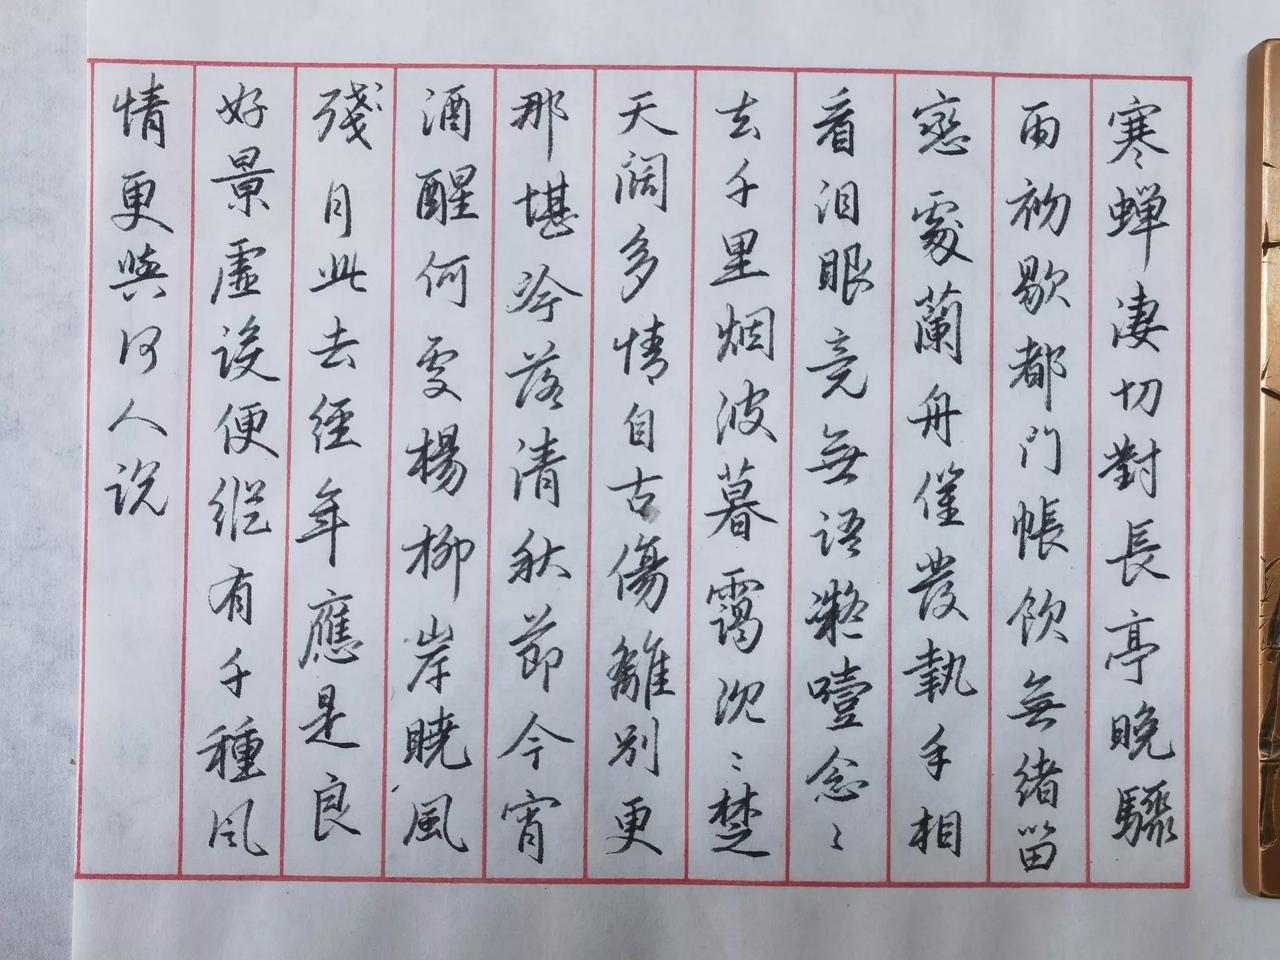 寒蟬淒切對長亭晚驟
雨初歇都門帳飲無緒留
戀處蘭舟催發執手相
看泪眼竟無語凝噎念〻
去千里烟波暮靄沉〻楚
天阔多情自古傷離别更
那堪冷落清秋節今宵
酒醒何處楊柳岸曉風
殘月此去經年應是良
好景虛設便縱有千種風
情更與何人说